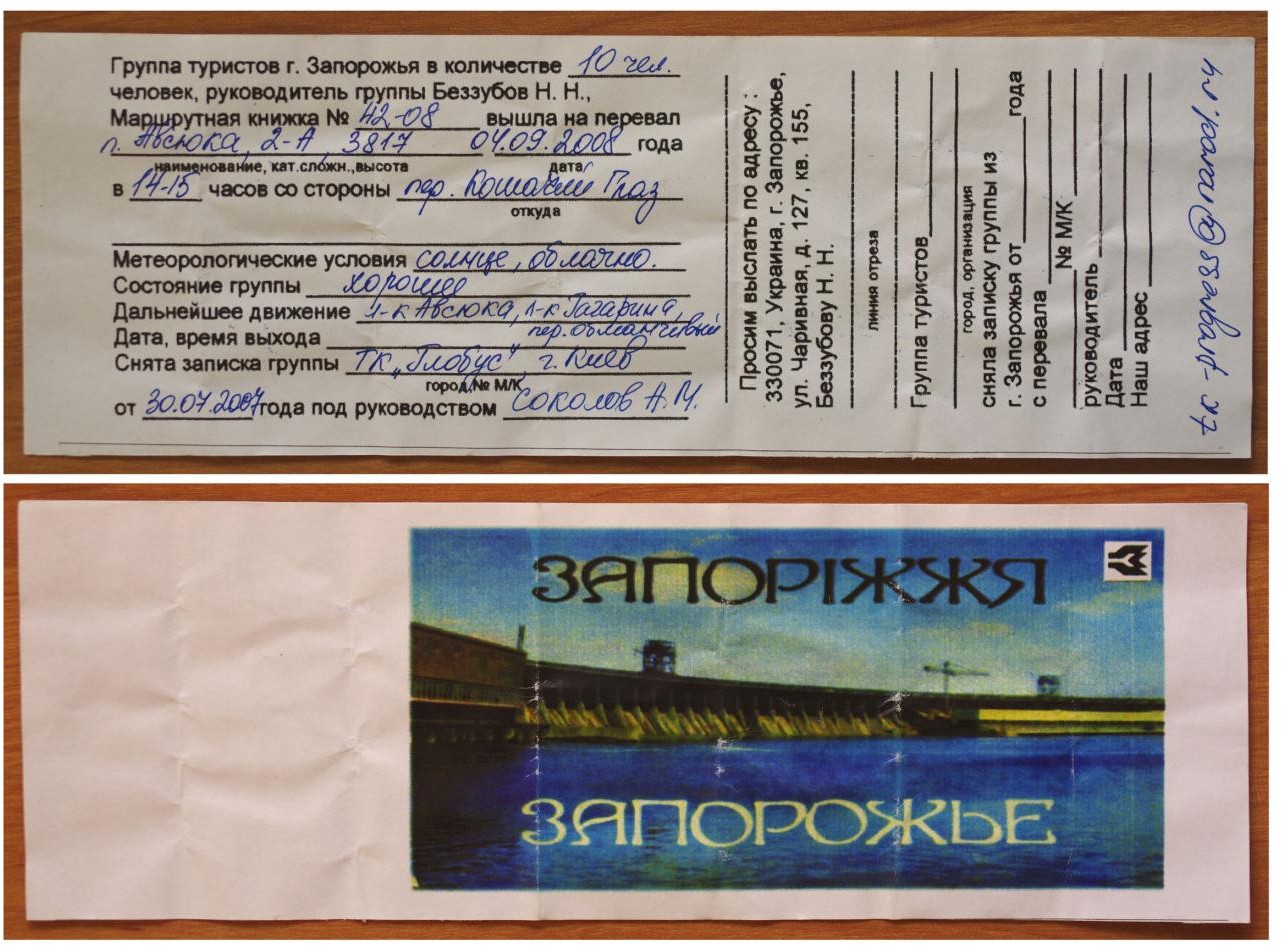 Группа туристов г. Запорожья в количестве 10 чел.
человек, руководитель группы Беззубов Н. Н.,
Маршрутная книжка № 42-08 вышла на перевал
п. Авсюка, 2-А, 3817 04.09.2008 года
наименование, кат.сложн.,высота дата
в 14-15 часов со стороны пер. Кошачий Глаз
откуда
Метеорологические условия солнце, облачно.
Состояние группы хорошее
Дальнейшее движение л-к Авсюка, л-к Гагарина,
пер. обманчивый
Дата, время выхода
Снята записка группы ТК „Глобус" г. Киев
город,№ М/К
от 30.07.2007 года под руководством Соколов А.М.
Просим выслать по адресу :
330071, Украина, г. Запорожье,
ул. Чаривная, д. 127, кв. 155,
Беззубову Н. Н.
линия отреза
Группа туристов
город, организация
сняла записку группы из
г. Запорожья от года
с перевала
№ М/К
руководитель
Дата
Наш адрес
tk-progress@narod.ru
ЗАПОРІЖЖЯ
ЗАПОРОЖЬЕ